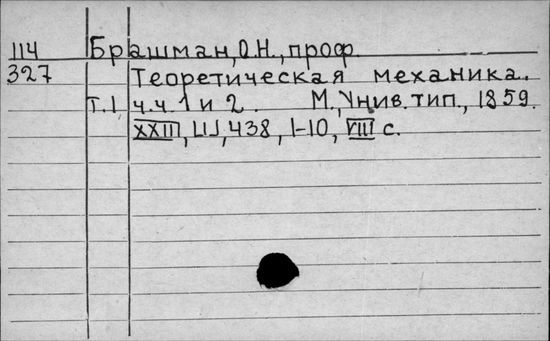 114 Брашман, О.Н., проф.
327 Теоретическая механика.
Т. I ч.ч 1 и 2. М., Унив. тип., 1859.
XXIII, [1], 438, 1-10, VIII с.